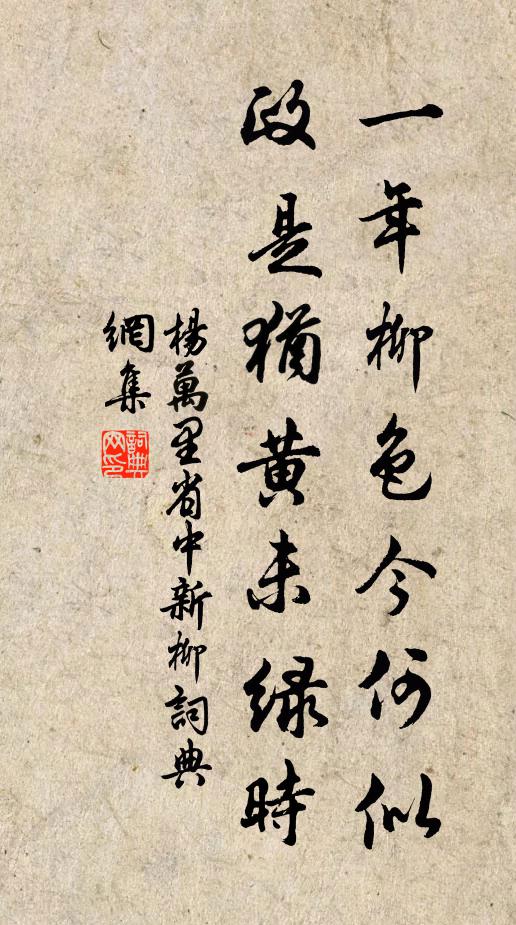 一年柳色今何似
政是猶黄未緑時
楊萬里省中新柳詞典
網集
詞典網印